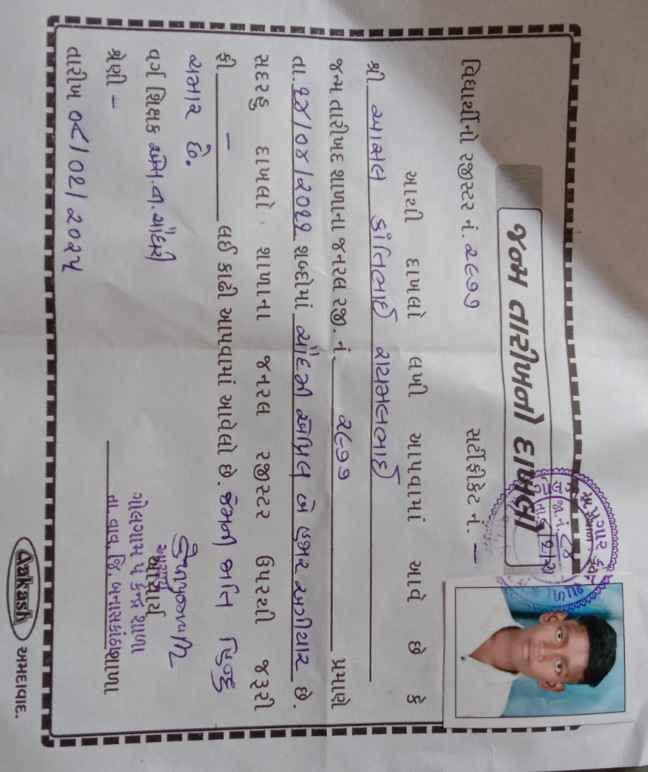 જન્મ તારીખનો દાખલો
વિદ્યાર્થીનો રજીસ્ટર નં. ૨૮૭૭ સર્ટીફીકેટ નં. —
આથી દાખલો લખી આપવામાં આવે છે કે
શ્રી આમલ કાંતિભાઈ રાયમલભાઈ
જન્મ તારીખ શાળાના જનરલ રજી. નં ૨૮૭૭ પ્રમાણે
તા. ૧૪/૦૪/૨૦૧૧ શબ્દોમાં ચૌદમી એપ્રિલ બે હજાર અગીયાર છે.
સદરહુ દાખલો શાળાના જનરલ રજીસ્ટર ઉપરથી જરૂરી
ફી — લઈ કાઢી આપવામાં આવેલો છે. જેમની જાતિ હિન્દુ
ચમાર છે.
વર્ગ શિક્ષક
શ્રેણી –
તારીખ ૦૮/૦૨/૨૦૨૫
આચાર્ય
ગોલગામ પે કેન્દ્ર શાળા
તા. વાવ, જિ. બનાસકાંઠા શાળા
Aakash અમદાવાદ.